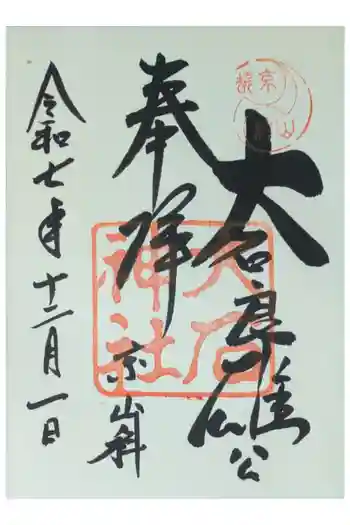 大石良雄公
奉拝
京山科
令和七年十二月一日
大石
神社